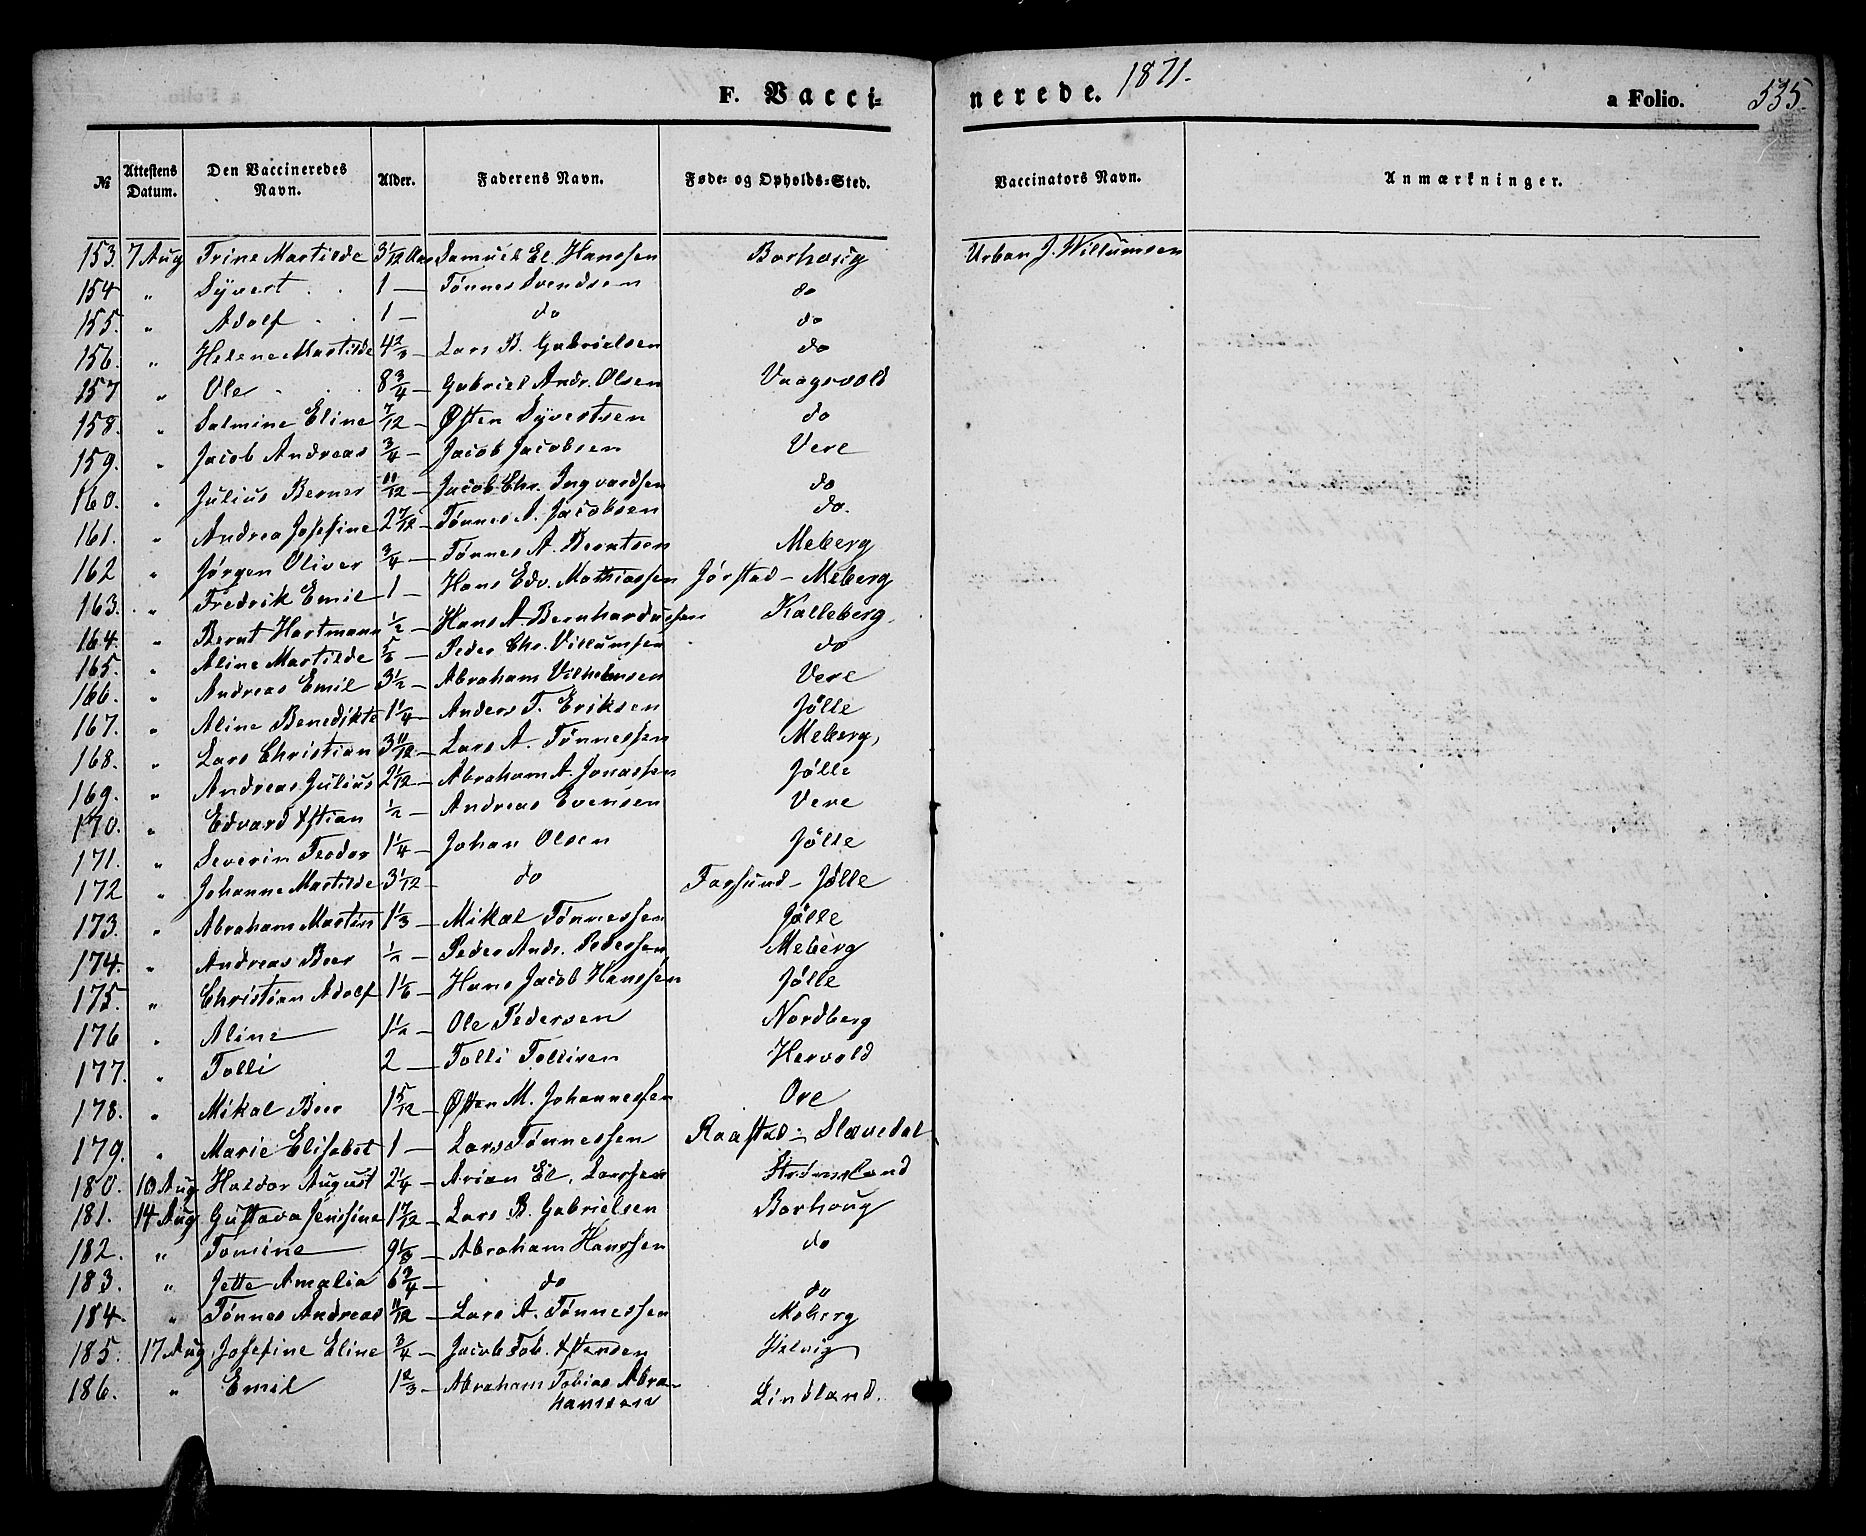 F. Vaccinerede. 1871.
a Folio. 535.
№ Attestens Datum. Den Vaccineredes Navn. Alder. Faderens Navn. Føde- og Opholds-Sted. Vaccinators Navn. Anmærkninger.
153. 7 Aug Trine Martilde 3 1/12 Aar Samuel El. Hanssen Borhoug Urban J. Willumsen
154 " Syvert 1 — Tønnes Svendsen do
155. " Adolf 1 — do do
156. " Helene Martilde 4 2/3 — Lars B. Gabrielsen do
157 " Ole 8 3/4 — Gabriel Andr. Olsen Vaagsvold
158. " Salmine Eline 7/12 — Østen Syvertsen do
159. " Jacob Andreas 3/4 — Jacob Jacobsen Vere
160. " Julius Berner 11/12 — Jacob Chr. Ingvardsen do
161. " Andrea Josefine 2 7/12 — Tønnes A. Jacobsen do.
162 " Jørgen Oliver 3/4 — Tønnes A. Berntsen Meberg
163. " Fredrik Emil 1 — Hans Edv. Mathiassen Jørstad - Meberg
164. " Bernt Hartmann 1/2 — Hans A. Bernhardussen Kalleberg
165. " Aline Martilde 5/6 — Peder Chr. Villumsen do
166. " Andreas Emil 3 1/2 — Abraham Vilhelmsen Vere
167. " Aline Benedikte 1 1/4 — Anders T. Eriksen Jølle
168. " Lars Christian 3 11/12 — Lars A. Tønnessen Meberg,
169. " Andreas Julius 2 1/12 — Abraham A. Jonassen Jølle
170. " Edvard Xstian 1/2 — Andreas Evensen Vere
171. " Severin Teodor 1 1/4 — Johan Olsen Jølle
172 " Johanne Martilde 3 1/12 — do Farsund - Jølle
173. " Abraham Martin 1 1/3 — Mikal Tønnessen Jølle
174. " Andreas Beer 1/2 — Peder Andr. Pedersen Meberg
175. " Christian Adolf 1 1/6 — Hans Jacob Hanssen Jølle
176 " Aline 1 1/2 — Ole Pedersen Nordberg
177. " Tolli 2 — Tolli Tollisen Hervold
178. " Mikal Beer 1 5/12 — Østen M. Johannessen Ore
179. " Marie Elisabet 1 — Lars Tønnessen Raastad - Slævedal
180. 10 Aug Haldor August 2 1/4 — Arian El. Larssen Strømsland
181. 14 Aug Gustava Jensine 1 7/12 — Lars B. Gabrielsen Borhoug
182. " Tomine 9 1/3 — Abraham Hanssen do
183. " Jette Amalia 6 3/4 — do do
184. " Tønnes Andreas 11/12 — Lars A. Tønnessen Meberg
185. 17 Aug Josefine Eline 3/4 — Jacob Tob. Xstensen Helvig
186. " Emil 1 2/3 — Abraham Tobias Abra-
hamsen Lindland.